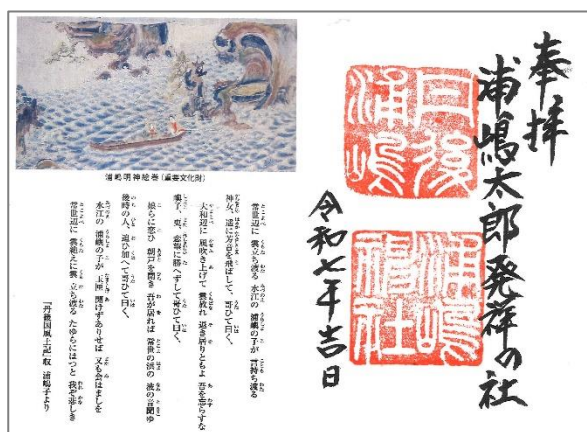 奉拝
浦嶋太郎発祥の社
丹後
浦嶋
浦嶋
神社
令和七年吉日
浦嶋明神絵巻(重要文化財)
常世辺に 雲立ち渡る 水江の 浦嶼の子が 言持ち渡る
神女、遥に芳音を飛ばして、哥ひて曰く、
大和辺に 風吹き上げて 雲放れ 退き居りともよ 吾を忘らすな
嶼子、更、恋望に勝へずして哥ひて曰く、
娘らに恋ひ 朝戸を開き 吾が居れば 常世の浜の 波の音聞ゆ
後時の人、追ひ加へて哥ひて曰く、
水江の 浦嶼の子が 玉匣 開けずありせば 又も会はましを
常世辺に 雲絶えに雲 立ち渡る たゆらにはつと 我ぞ悲しき
『丹後国風土記』収 浦嶋子より